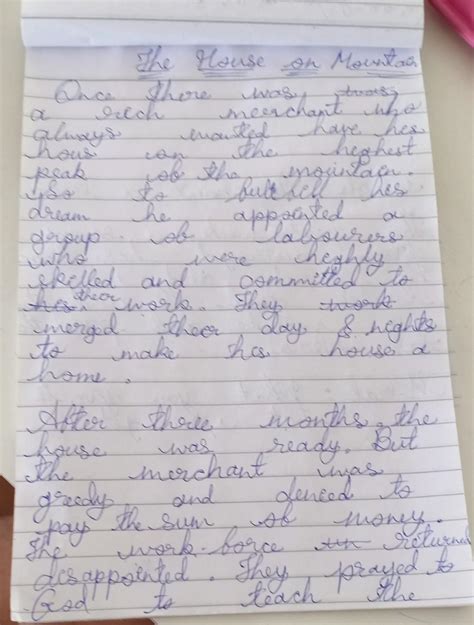 The House on Mountain
Once there was
a rich merchant who
always wanted have his
hous on the highest
peak of the mountain.
So to fullfill his
dream he appointed a
group of labourers
who were highly
skilled and committed to
their work. They
merged their day & nights
to make his house a
home.
After three months the
house was ready. But
the merchant was
greedy and denied to
pay the sum of money.
The work-force returned
disappointed. They prayed to
God to teach the